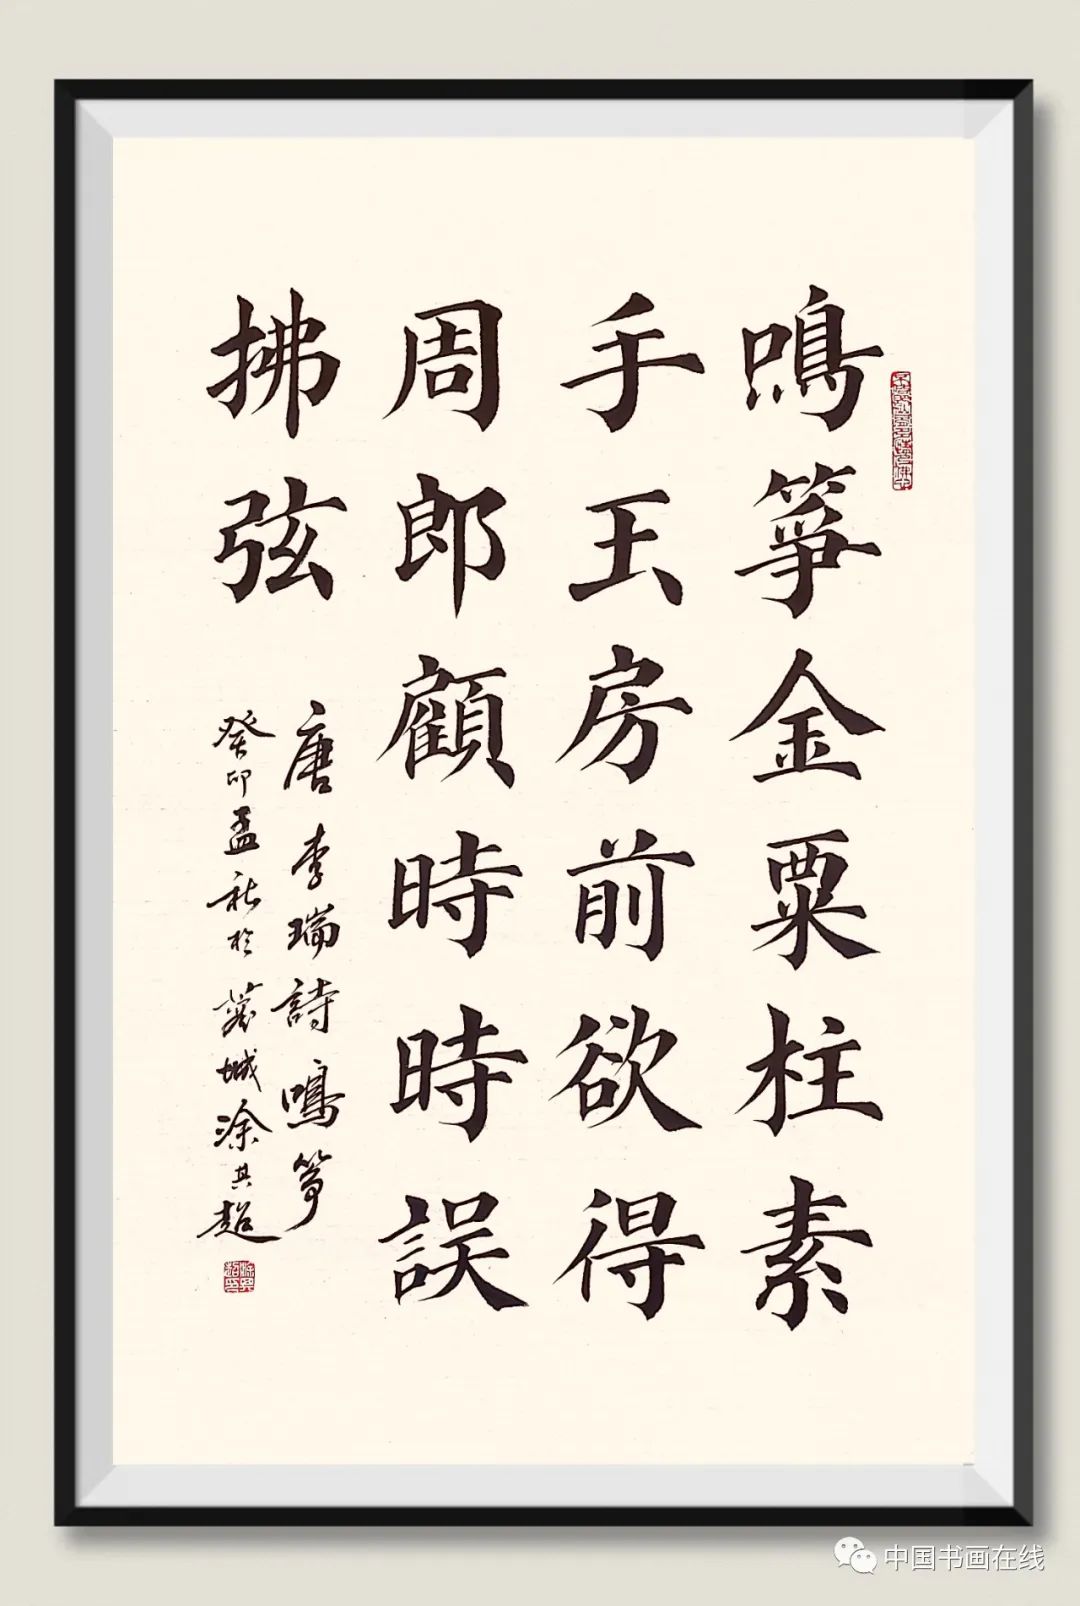 鳴箏金粟柱素
手玉房前欲得
周郎顧時時誤
拂弦
唐李瑞詩鳴箏
癸卯孟秋於蓉城涂其超
中国书画在线